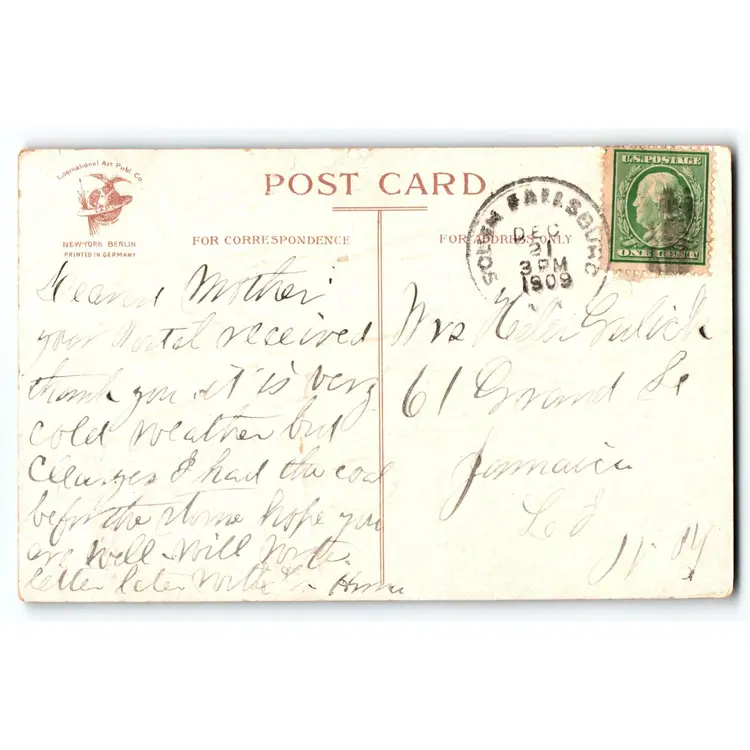 International Art Publ. Co.
NEW YORK BERLIN
PRINTED IN GERMANY
POST CARD
FOR CORRESPONDENCE
FOR ADDRESS ONLY
FALLSBURG
DEC
3 PM
1909
U.S. POSTAGE
ONE CENT
Dearest Mother
your Postal received
thank you. it is very
cold weather but
I had the
before the storme hope you
are well will
letter later
Mrs
61 Grand St
Jamaica
L I
N Y